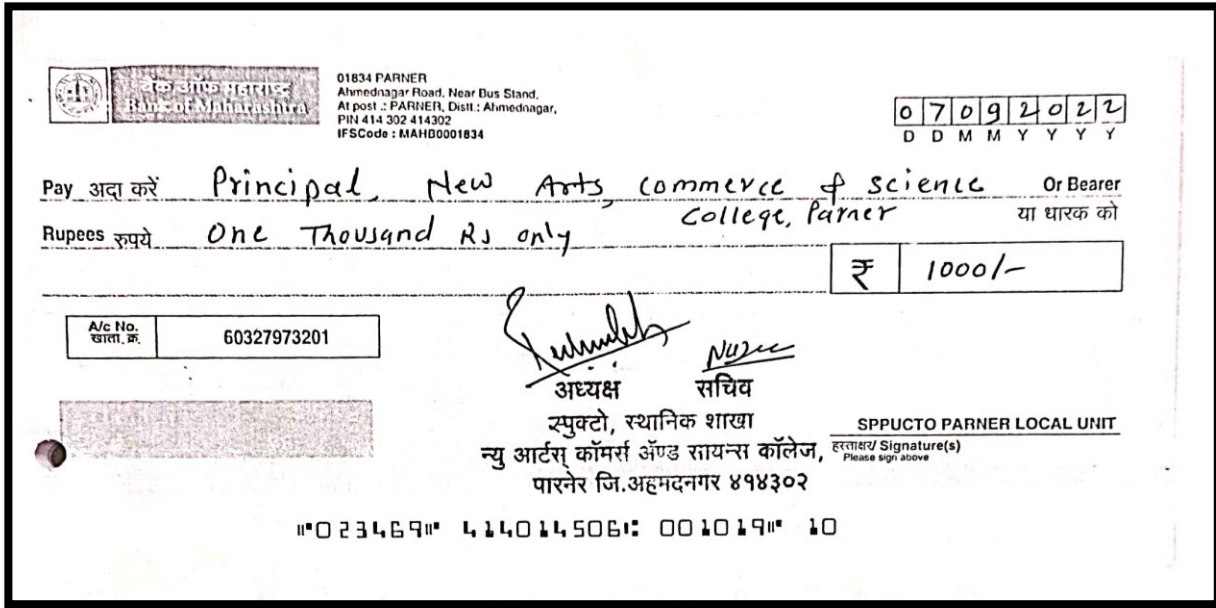 बैंक ऑफ महाराष्ट्र
Bank of Maharashtra
01834 PARNER
Ahmednagar Road, Near Bus Stand,
At post .: PARNER, Distt.: Ahmednagar,
PIN 414 302 414302
IFSCode : MAHB0001834
07092022
D D M M Y Y Y Y
Pay अदा करें Principal, New Arts, Commerce & Science Or Bearer
College, Parner या धारक को
Rupees रुपये One Thousand Rs only
₹ 1000/-
A/c No.
खाता. क्र. 60327973201
अध्यक्ष सचिव
स्पुक्टो, स्थानिक शाखा
न्यु आर्टस् कॉमर्स अॅण्ड सायन्स कॉलेज,
पारनेर जि.अहमदनगर ४१४३०२
SPPUCTO PARNER LOCAL UNIT
हस्ताक्षर/ Signature(s)
Please sign above
⑈023469⑈ 414014506⑆ 001019⑈ 10